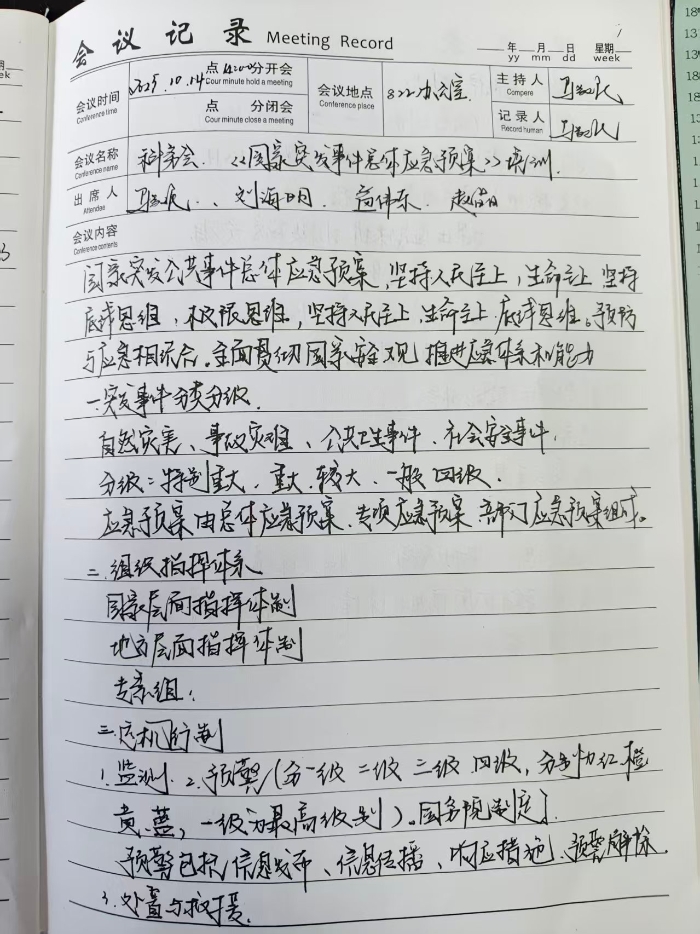 会议记录 Meeting Record
年 yy 月 mm 日 dd 星期 week
会议时间 Conference time 2025.10.14 点 12:00分开会 Cour minute hold a meeting
点 分闭会 Cour minute close a meeting
会议地点 Conference place 822办公室.
主持人 Compere
记录人 Record human
会议名称 Conference name 科务会. 《国家突发事件总体应急预案》培训.
出席人 Attendee 刘海明.
会议内容 Conference contents
国家突发公共事件总体应急预案,坚持人民至上,生命至上 坚持
底线思维、极限思维,坚持人民至上.生命至上.底线思维。预防
与应急相结合.全面贯彻国家安全观 推进应急体系和能力
一.突发事件分类分级.
自然灾害、事故灾难、公共卫生事件、社会安全事件.
分级:特别重大、重大、较大、一般 四级.
应急预案由总体应急预案、专项应急预案、部门应急预案组成。
二.组织指挥体系
国家层面指挥体制
地方层面指挥体制
专家组:
三.运机行制
1.监测. 2.预警(分一级 二级 三级 四级,分别为红橙
黄.蓝,一级为最高级别)。国务院制定
预警包括信息发布、信息传播、响应措施、预警解除.
3.处置与救援.